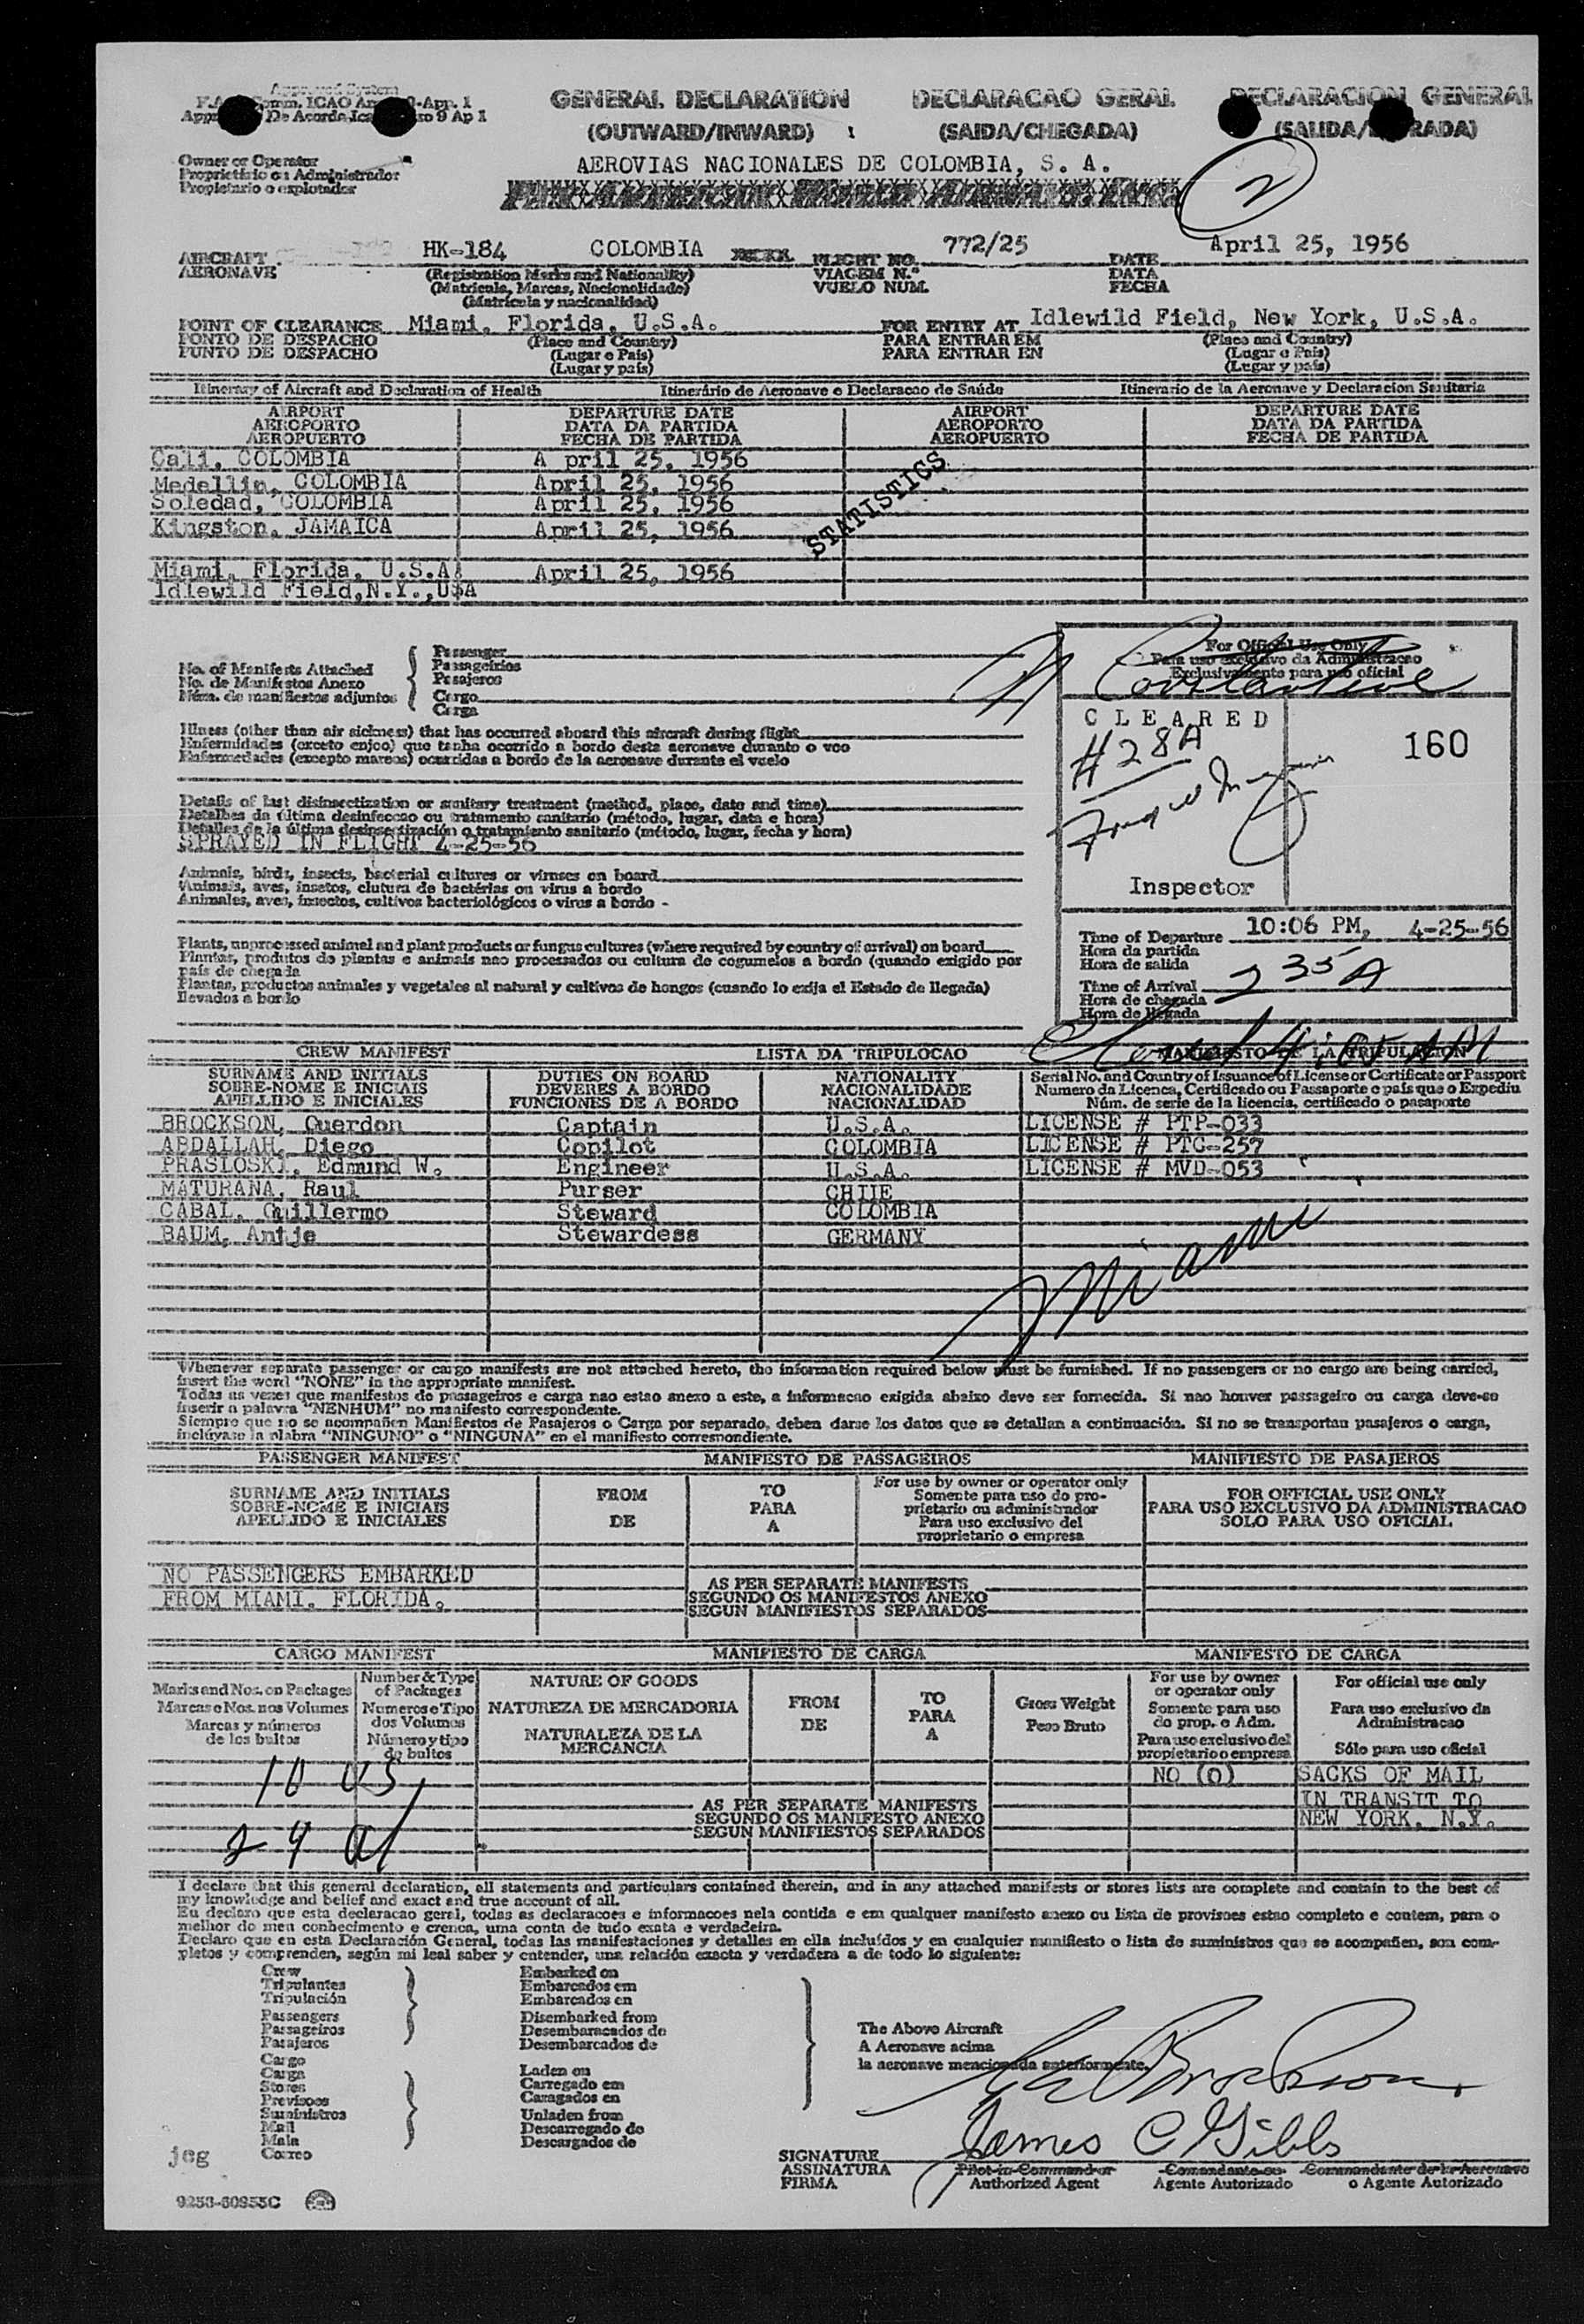 Approved System
Comm. ICAO -App. 1
De Acordo 9 Ap 1
GENERAL DECLARATION DECLARACAO GERAL DECLARACION GENERAL
(OUTWARD/INWARD) (SAIDA/CHEGADA) (SALIDA/
Owner or Operator
Proprietário ou Administrador
Propietario o explotador
AEROVIAS NACIONALES DE COLOMBIA, S. A.
2
AIRCRAFT HK-184 COLOMBIA FLIGHT NO. 772/25 DATE April 25, 1956
AERONAVE (Registration Marks and Nationality) VIAGEM N.° DATA
(Matricula, Marcas, Nacionalidade) VUELO NUM. FECHA
(Matricula y nacionalidad)
POINT OF CLEARANCE Miami, Florida, U.S.A. FOR ENTRY AT Idlewild Field, New York, U.S.A.
PONTO DE DESPACHO (Place and Country) PARA ENTRAR EM (Place and Country)
PUNTO DE DESPACHO (Lugar e Pais) PARA ENTRAR EN (Lugar e Pais)
(Lugar y pais) (Lugar y pais)
Itinerary of Aircraft and Declaration of Health Itinerário de Aeronave e Declaracao de Saúde Itinerario de la Aeronave y Declaracion Sanitaria
AIRPORT DEPARTURE DATE AIRPORT DEPARTURE DATE
AEROPORTO DATA DA PARTIDA AEROPORTO DATA DA PARTIDA
AEROPUERTO FECHA DE PARTIDA AEROPUERTO FECHA DE PARTIDA
Cali, COLOMBIA A pril 25, 1956
Medellin, COLOMBIA April 25, 1956
Soledad, COLOMBIA April 25, 1956
Kingston, JAMAICA April 25, 1956
STATISTICS
Miami, Florida, U.S.A. April 25, 1956
Idlewild Field,N.Y.,USA
No. of Manifests Attached
No. de Manifestos Anexo
Núm. de manifiestos adjuntos
Passenger
Passageirios
Pasajeros
Cargo
Carga
For Official Use Only
Para uso exclusivo da Administracao
Exclusivamente para uso oficial
Illness (other than air sickness) that has occurred aboard this aircraft during flight
Enfermidades (exceto enjoo) que tenha ocorrido a bordo desta aeronave durante o voo
Enfermedades (excepto mareos) ocurridas a bordo de la aeronave durante el vuelo
CLEARED
#28A
160
Inspector
Details of last disinsectization or sanitary treatment (method, place, date and time)
Detalhes da última desinfeccao ou tratamento sanitario (método, lugar, data e hora)
Detalles de la última desinsectización o tratamiento sanitario (método, lugar, fecha y hora)
SPRAYED IN FLIGHT 4-25-56
Animals, birds, insects, bacterial cultures or viruses on board
Animais, aves, insetos, clutura de bactérias ou virus a bordo
Animales, aves, insectos, cultivos bacteriológicos o virus a bordo -
Plants, unprocessed animal and plant products or fungus cultures (where required by country of arrival) on board
Plantas, produtos de plantas e animais nao processados ou cultura de cogumelos a bordo (quando exigido por
país de chegada
Plantas, productos animales y vegetales al natural y cultivos de hongos (cuando lo exija el Estado de llegada)
llevados a bordo
Time of Departure 10:06 PM, 4-25-56
Hora da partida
Hora de salida
Time of Arrival 2 35 A
Hora de chegada
Hora de llegada
CREW MANIFEST LISTA DA TRIPULOCAO MANIFIESTO DE LA TRIPULACION
SURNAME AND INITIALS DUTIES ON BOARD NATIONALITY Serial No. and Country of Issuance of License or Certificate or Passport
SOBRE-NOME E INICIAIS DEVERES A BORDO NACIONALIDADE Numero da Licenca, Certificado ou Passaporte e país que o Expediu
APELLIDO E INICIALES FUNCIONES DE A BORDO NACIONALIDAD Núm. de serie de la licencia, certificado o pasaporte
BROCKSON, Guerdon Captain U.S.A. LICENSE # PTP-033
ABDALLAH, Diego Copilot COLOMBIA LICENSE # PTC-257
PRASLOSKI, Edmund W. Engineer U.S.A. LICENSE # MVD-053
MATURANA, Raul Purser CHILE
CABAL, Guillermo Steward COLOMBIA
BAUM, Antje Stewardess GERMANY
Miami
Whenever separate passenger or cargo manifests are not attached hereto, the information required below must be furnished. If no passengers or no cargo are being carried,
insert the word "NONE" in the appropriate manifest.
Todas as vezes que manifestos de passageiros e carga nao estao anexo a este, a informacao exigida abaixo deve ser fornecida. Si nao houver passageiro ou carga deve-se
inserir a palavra "NENHUM" no manifesto correspondente.
Siempre que no se acompañen Manifiestos de Pasajeros o Carga por separado, deben darse los datos que se detallan a continuación. Si no se transportan pasajeros o carga,
inclúyase la plabra "NINGUNO" o "NINGUNA" en el manifiesto correspondiente.
PASSENGER MANIFEST MANIFESTO DE PASSAGEIROS MANIFIESTO DE PASAJEROS
SURNAME AND INITIALS
SOBRE-NOME E INICIAIS
APELLIDO E INICIALES
FROM
DE
TO
PARA
A
For use by owner or operator only
Somente para uso do pro-
prietario ou administrador
Para uso exclusivo del
proprietario o empresa
FOR OFFICIAL USE ONLY
PARA USO EXCLUSIVO DA ADMINISTRACAO
SOLO PARA USO OFICIAL
NO PASSENGERS EMBARKED
FROM MIAMI, FLORIDA.
AS PER SEPARATE MANIFESTS
SEGUNDO OS MANIFESTOS ANEXO
SEGUN MANIFIESTOS SEPARADOS
CARGO MANIFEST MANIFIESTO DE CARGA MANIFESTO DE CARGA
Marks and Nos. on Packages
Marcas e Nos. nos Volumes
Marcas y números
de los bultos
Number & Type
of Packages
Numeros e Tipo
dos Volumes
Número y tipo
de bultos
NATURE OF GOODS
NATUREZA DE MERCADORIA
NATURALEZA DE LA
MERCANCIA
FROM
DE
TO
PARA
A
Gross Weight
Peso Bruto
For use by owner
or operator only
Somente para uso
do prop. e Adm.
Para uso exclusivo del
propietario o empresa
For official use only
Para uso exclusivo da
Administracao
Sólo para uso oficial
10 US
NO (0) SACKS OF MAIL
IN TRANSIT TO
NEW YORK, N.Y.
AS PER SEPARATE MANIFESTS
SEGUNDO OS MANIFESTO ANEXO
SEGUN MANIFIESTOS SEPARADOS
I declare that this general declaration, all statements and particulars contained therein, and in any attached manifests or stores lists are complete and contain to the best of
my knowledge and belief and exact and true account of all.
Eu declaro que esta declaracao geral, todas as declaracoes e informacoes nela contida e em qualquer manifesto anexo ou lista de provisoes estao completo e contem, para o
melhor do meu conhecimento e crenca, uma conta de tudo exata e verdadeira.
Declaro que en esta Declaración General, todas las manifestaciones y detalles en ella incluídos y en cualquier manifiesto o lista de suministros que se acompañen, son com-
pletos y comprenden, según mi leal saber y entender, una relación exacta y verdadera a de todo lo siguiente:
Crew
Tripulantes
Tripulación
Passengers
Passageiros
Pasajeros
Cargo
Carga
Stores
Previsoes
Suministros
Mail
Mala
Correo
Embarked on
Embarcados em
Embarcados en
Disembarked from
Desembaracados de
Desembarcados de
Laden on
Carregado em
Caragados en
Unladen from
Descarregado de
Descargados de
The Above Aircraft
A Aeronave acima
la aeronave mencionada anteriormente.
James C Gibbs
jeg
SIGNATURE
ASSINATURA
FIRMA
Pilot-in-Command or
Authorized Agent
Comandante ou
Agente Autorizado
Commandante de la Aeronave
o Agente Autorizado
9258-60955C